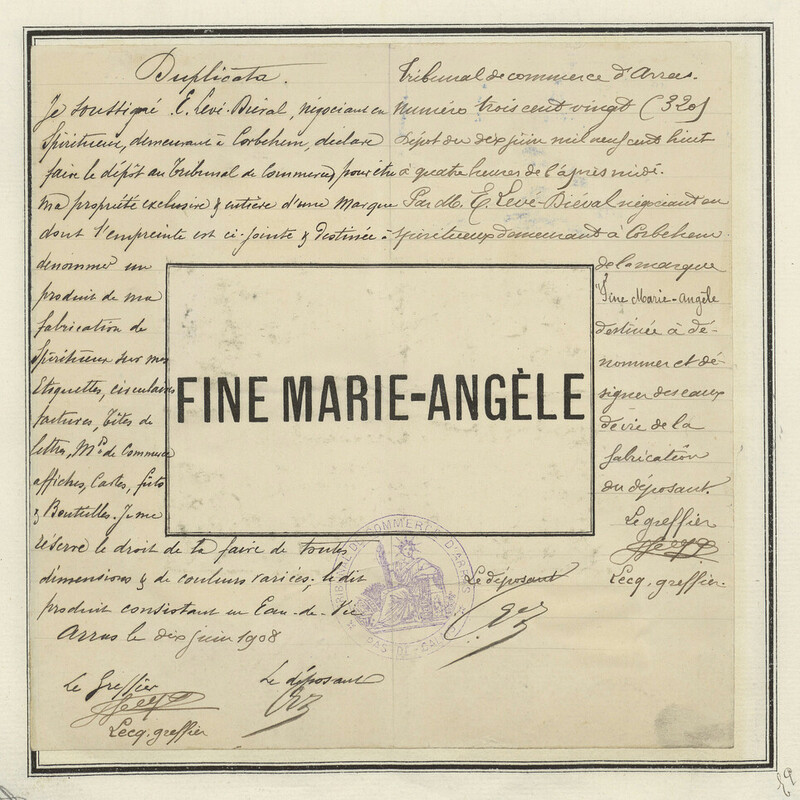 Duplicata.
Je soussigné E. Levé-Biéval, négociant en
Spiritueux, demeurant à Corbehem, déclare
faire le dépôt au Tribunal de Commerce, pour être
ma propriété exclusive & entière d'une Marque
dont l'empreinte est ci-jointe & destinée à
dénommer un
produit de ma
fabrication de
Spiritueux sur mes
Etiquettes, circulaires
factures, Têtes de
lettres, Mds de Commerce
affiches, Cartes, fûts
& Bouteilles. Je me
réserve le droit de la faire de toutes
dimensions & de couleurs variées; le dit
produit consistant en Eau-de-Vie
Arras le dix juin 1908
Le Greffier
Lecq. greffier
Le déposant
FINE MARIE-ANGÈLE
Tribunal de commerce d'Arras.
Numéro trois cent vingt (320)
Dépôt du dix juin mil neuf cent huit
à quatre heures de l'après midi.
Par M. E. Levé-Biéval négociant en
spiritueux demeurant à Corbehem
de la marque
"Fine Marie-Angèle
destinée à dé-
nommer et dé-
signer des eaux
de vie de la
fabrication
du déposant.
Le greffier
Lecq. greffier.
Le déposant
TRIBUNAL DE COMMERCE D'ARRAS
PAS-DE-CALAIS